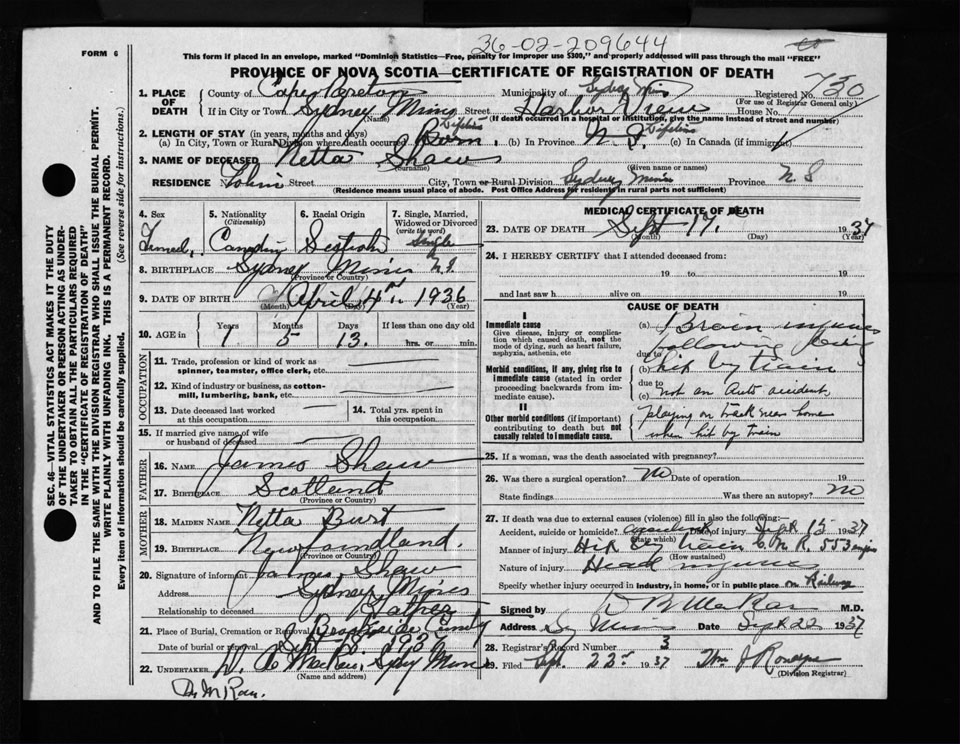 36-02-209644
FORM 6
This form if placed in an envelope, marked "Dominion Statistics—Free, penalty for improper use $300," and properly addressed will pass through the mail "FREE"
PROVINCE OF NOVA SCOTIA—CERTIFICATE OF REGISTRATION OF DEATH
730
SEC. 46—VITAL STATISTICS ACT MAKES IT THE DUTY
OF THE UNDERTAKER OR PERSON ACTING AS UNDER-
TAKER TO OBTAIN ALL THE PARTICULARS REQUIRED
IN THE "CERTIFICATE OF REGISTRATION OF DEATH"
AND TO FILE THE SAME WITH THE DIVISION REGISTRAR WHO SHALL ISSUE THE BURIAL PERMIT.
WRITE PLAINLY WITH UNFADING INK. THIS IS A PERMANENT RECORD.
Every item of information should be carefully supplied. (See reverse side for instructions.)
1. PLACE OF DEATH County of Cape Breton Municipality of Sydney Mines Registered No.
(For use of Registrar General only)
If in City or Town Sydney Mines Street Harbor View House No.
(Name) (If death occurred in a hospital or institution, give the name instead of street and number)
2. LENGTH OF STAY (in years, months and days)
(a) In City, Town or Rural Division where death occurred Born. Lifetime (b) In Province N.S. Lifetime (c) In Canada (if immigrant)
3. NAME OF DECEASED Netta Shaw
(surname) (Given name or names)
RESIDENCE No. Street City, Town or Rural Division Sydney Mines Province N S
(Residence means usual place of abode. Post Office Address for residents in rural parts not sufficient)
4. Sex Female
5. Nationality (Citizenship) Canadian
6. Racial Origin Scotish
7. Single, Married, Widowed or Divorced (write the word) Single
8. BIRTHPLACE Sydney Mines N.S.
(Province or Country)
9. DATE OF BIRTH April 4th 1936
(Month) (Day) (Year)
10. AGE in Years 1 Months 5 Days 13. If less than one day old
hrs. or min.
OCCUPATION
11. Trade, profession or kind of work as
spinner, teamster, office clerk, etc.
12. Kind of industry or business, as cotton-
mill, lumbering, bank, etc.
13. Date deceased last worked at this occupation
14. Total yrs. spent in this occupation
15. If married give name of wife
or husband of deceased
FATHER
16. NAME James Shaw
17. BIRTHPLACE Scotland
(Province or Country)
MOTHER
18. MAIDEN NAME Netta Burt
19. BIRTHPLACE Newfoundland.
(Province or Country)
20. Signature of informant James Shaw
Address Sydney Mines
Relationship to deceased Father
21. Place of Burial, Cremation or Removal Cemetery
Date of burial or removal Sept 18 1937
22. UNDERTAKER Sydney Mines
(Name and address)
MEDICAL CERTIFICATE OF DEATH
23. DATE OF DEATH Sept 17. 1937
(Month) (Day) (Year)
24. I HEREBY CERTIFY that I attended deceased from:
19 to 19
and last saw h alive on 19
CAUSE OF DEATH
I
Immediate cause
Give disease, injury or complica-
tion which caused death, not the
mode of dying, such as heart failure,
asphyxia, asthenia, etc
Morbid conditions, if any, giving rise to
immediate cause (stated in order
proceeding backwards from im-
mediate cause).
II
Other morbid conditions (if important)
contributing to death but not
causally related to immediate cause.
(a) Brain injuries
following being
due to
(b) hit by train
due to
(c) not an auto accident
playing on track near home
when hit by train
25. If a woman, was the death associated with pregnancy?
26. Was there a surgical operation? No Date of operation 19
State findings Was there an autopsy? No
27. If death was due to external causes (violence) fill in also the following:—
Accident, suicide or homicide? accident Date of injury Sept 15 1937
(State which)
Manner of injury Hit by train C.N.R. 553 engine
(How sustained)
Nature of injury Head injuries
Specify whether injury occurred in industry, in home, or in public place on Railway
Signed by M.D.
Address Sy Mines Date Sept 22 1937
28. Registrar's Record Number 3
29. Filed Sept. 22nd 1937 Wm J
(Division Registrar)